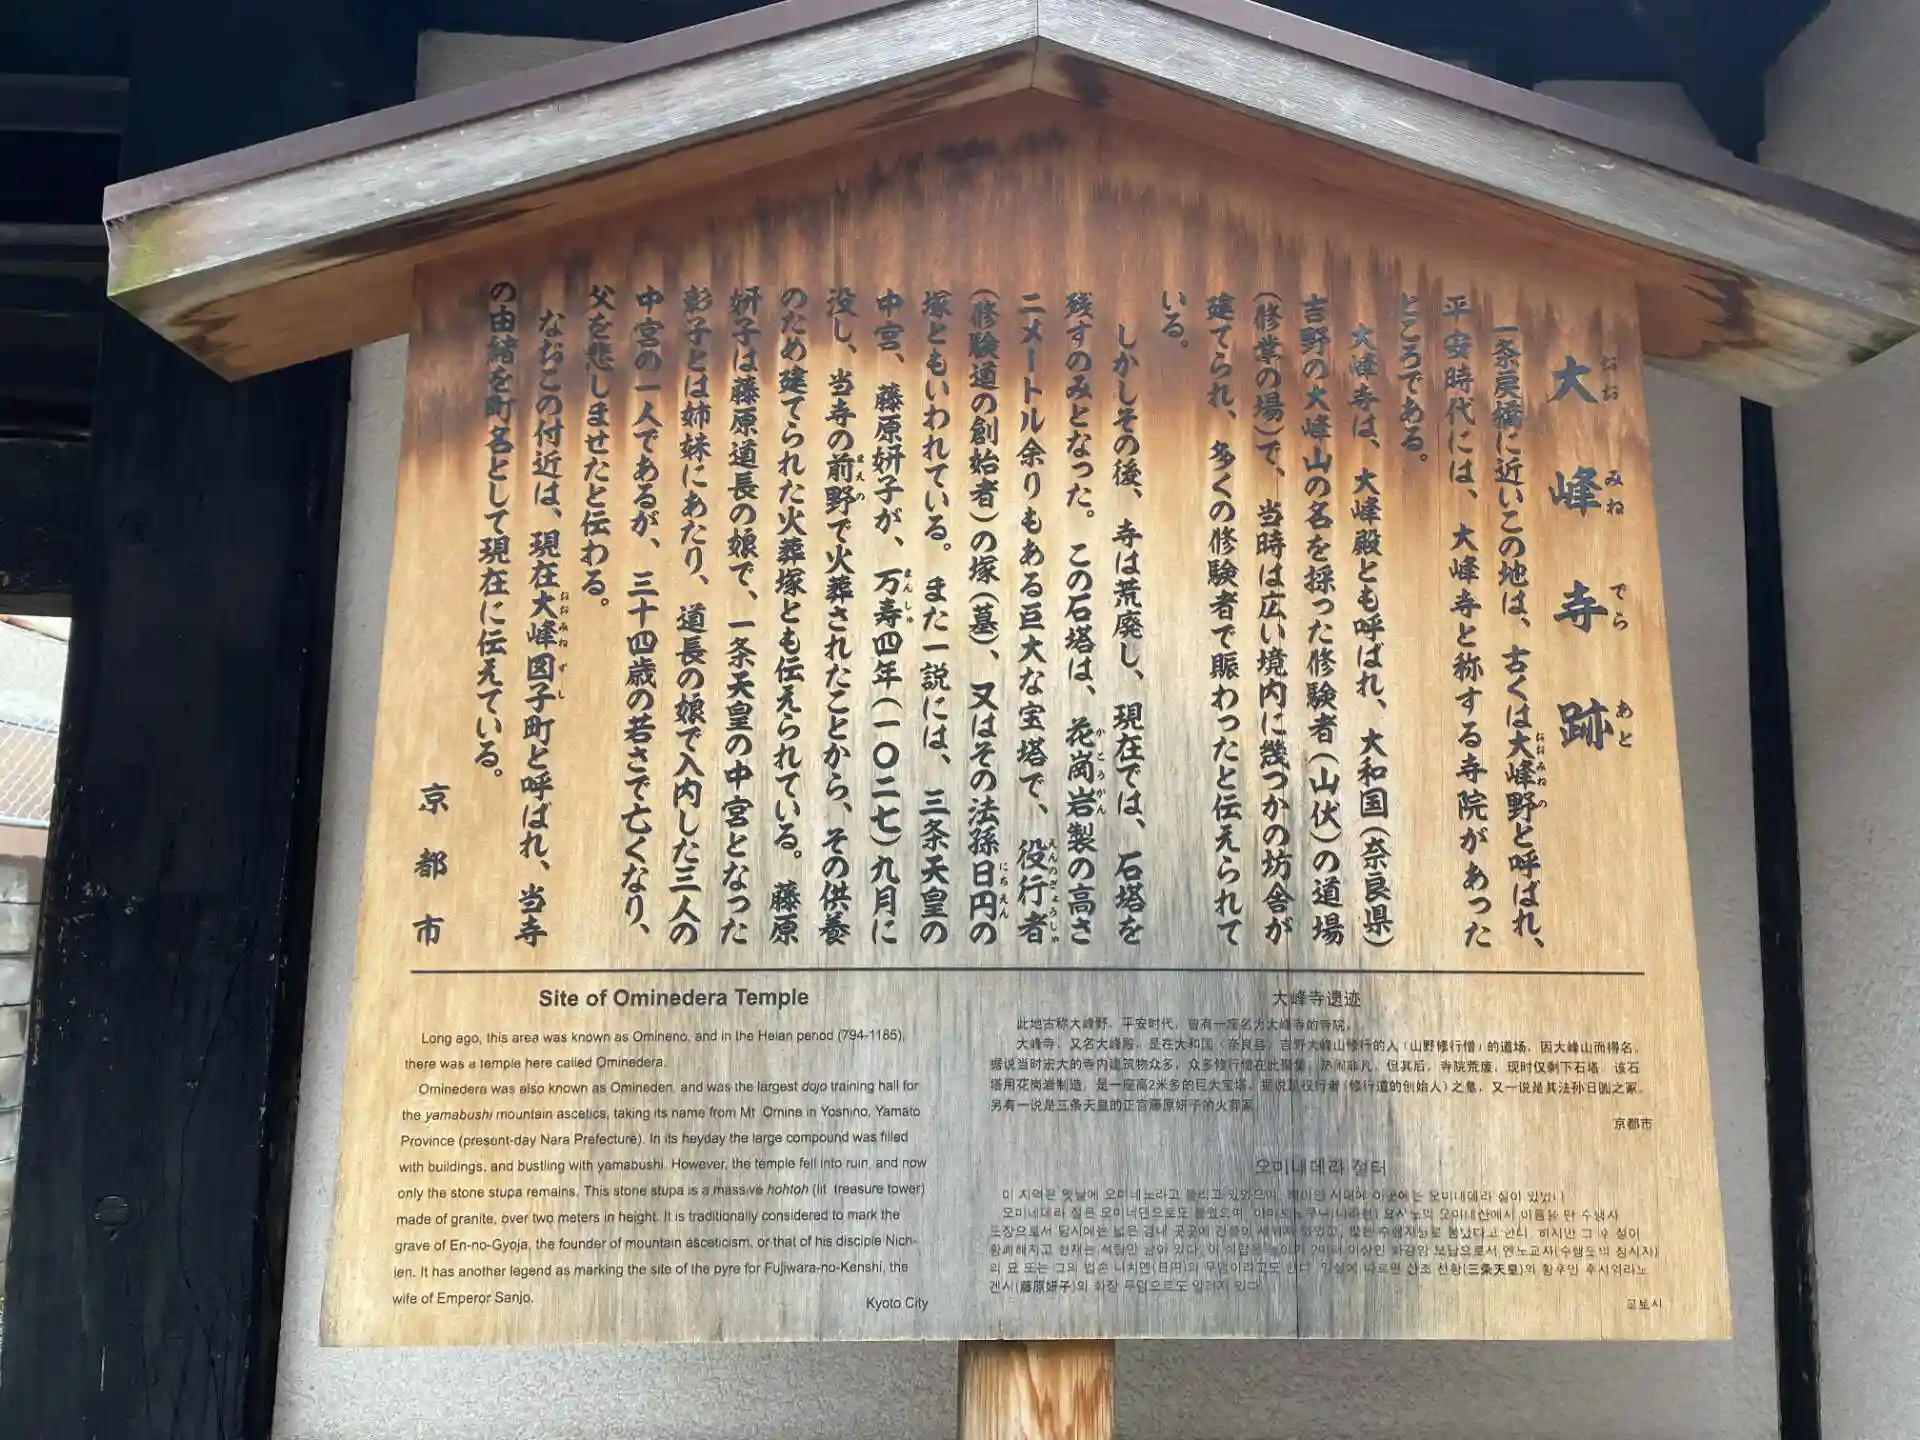 大峰寺跡
おお みね でら あと
一条戻橋に近いこの地は、古くは大峰野と呼ばれ、
おおみねの
平安時代には、大峰寺と称する寺院があった
ところである。
大峰寺は、大峰殿とも呼ばれ、大和国(奈良県)
吉野の大峰山の名を採った修験者(山伏)の道場
(修業の場)で、当時は広い境内に幾つかの坊舎が
建てられ、多くの修験者で賑わったと伝えられて
いる。
しかしその後、寺は荒廃し、現在では、石塔を
残すのみとなった。この石塔は、花崗岩製の高さ
かこうがん
二メートル余りもある巨大な宝塔で、役行者
えんのぎょうじゃ
(修験道の創始者)の塚(墓)、又はその法孫日円の
にちえん
塚ともいわれている。また一説には、三条天皇の
中宮、藤原妍子が、万寿四年(一〇二七)九月に
まんじゅ
没し、当寺の前野で火葬されたことから、その供養
まえの
のため建てられた火葬塚とも伝えられている。藤原
妍子は藤原道長の娘で、一条天皇の中宮となった
彰子とは姉妹にあたり、道長の娘で入内した三人の
中宮の一人であるが、三十四歳の若さで亡くなり、
父を悲しませたと伝わる。
なおこの付近は、現在大峰図子町と呼ばれ、当寺
おおみねずし
の由緒を町名として現在に伝えている。
京都市
Site of Ominedera Temple
Long ago, this area was known as Omineno, and in the Heian period (794-1185),
there was a temple here called Ominedera.
Ominedera was also known as Omineden, and was the largest dojo training hall for
the yamabushi mountain ascetics, taking its name from Mt. Omine in Yoshino, Yamato
Province (present-day Nara Prefecture). In its heyday the large compound was filled
with buildings, and bustling with yamabushi. However, the temple fell into ruin, and now
only the stone stupa remains. This stone stupa is a massive hohtoh (lit. treasure tower)
made of granite, over two meters in height. It is traditionally considered to mark the
grave of En-no-Gyoja, the founder of mountain asceticism, or that of his disciple Nich-
ien. It has another legend as marking the site of the pyre for Fujiwara-no-Kenshi, the
wife of Emperor Sanjo.
Kyoto City
大峰寺遗迹
此地古称大峰野，平安时代，曾有一座名为大峰寺的寺院。
大峰寺，又名大峰殿，是在大和国（奈良县）吉野大峰山修行的人（山野修行僧）的道场，因大峰山而得名。
据说当时宏大的寺内建筑物众多，众多修行僧在此聚集，热闹非凡，但其后，寺院荒废，现时仅剩下石塔。该石
塔用花岗岩制造，是一座高2米多的巨大宝塔，据说是役行者（修行道的创始人）之墓，又一说是其法孙日圆之冢。
另有一说是三条天皇的正宫藤原妍子的火葬冢。
京都市
오미네데라 절터
이 지역은 옛날에 오미네노라고 불리고 있었으며, 헤이안 시대에 이곳에는 오미네데라 절이 있었다
오미네데라 절은 오미네덴으로도 불렸으며, 요시노의 오미네산에서 이름을 딴 수행자
교토시